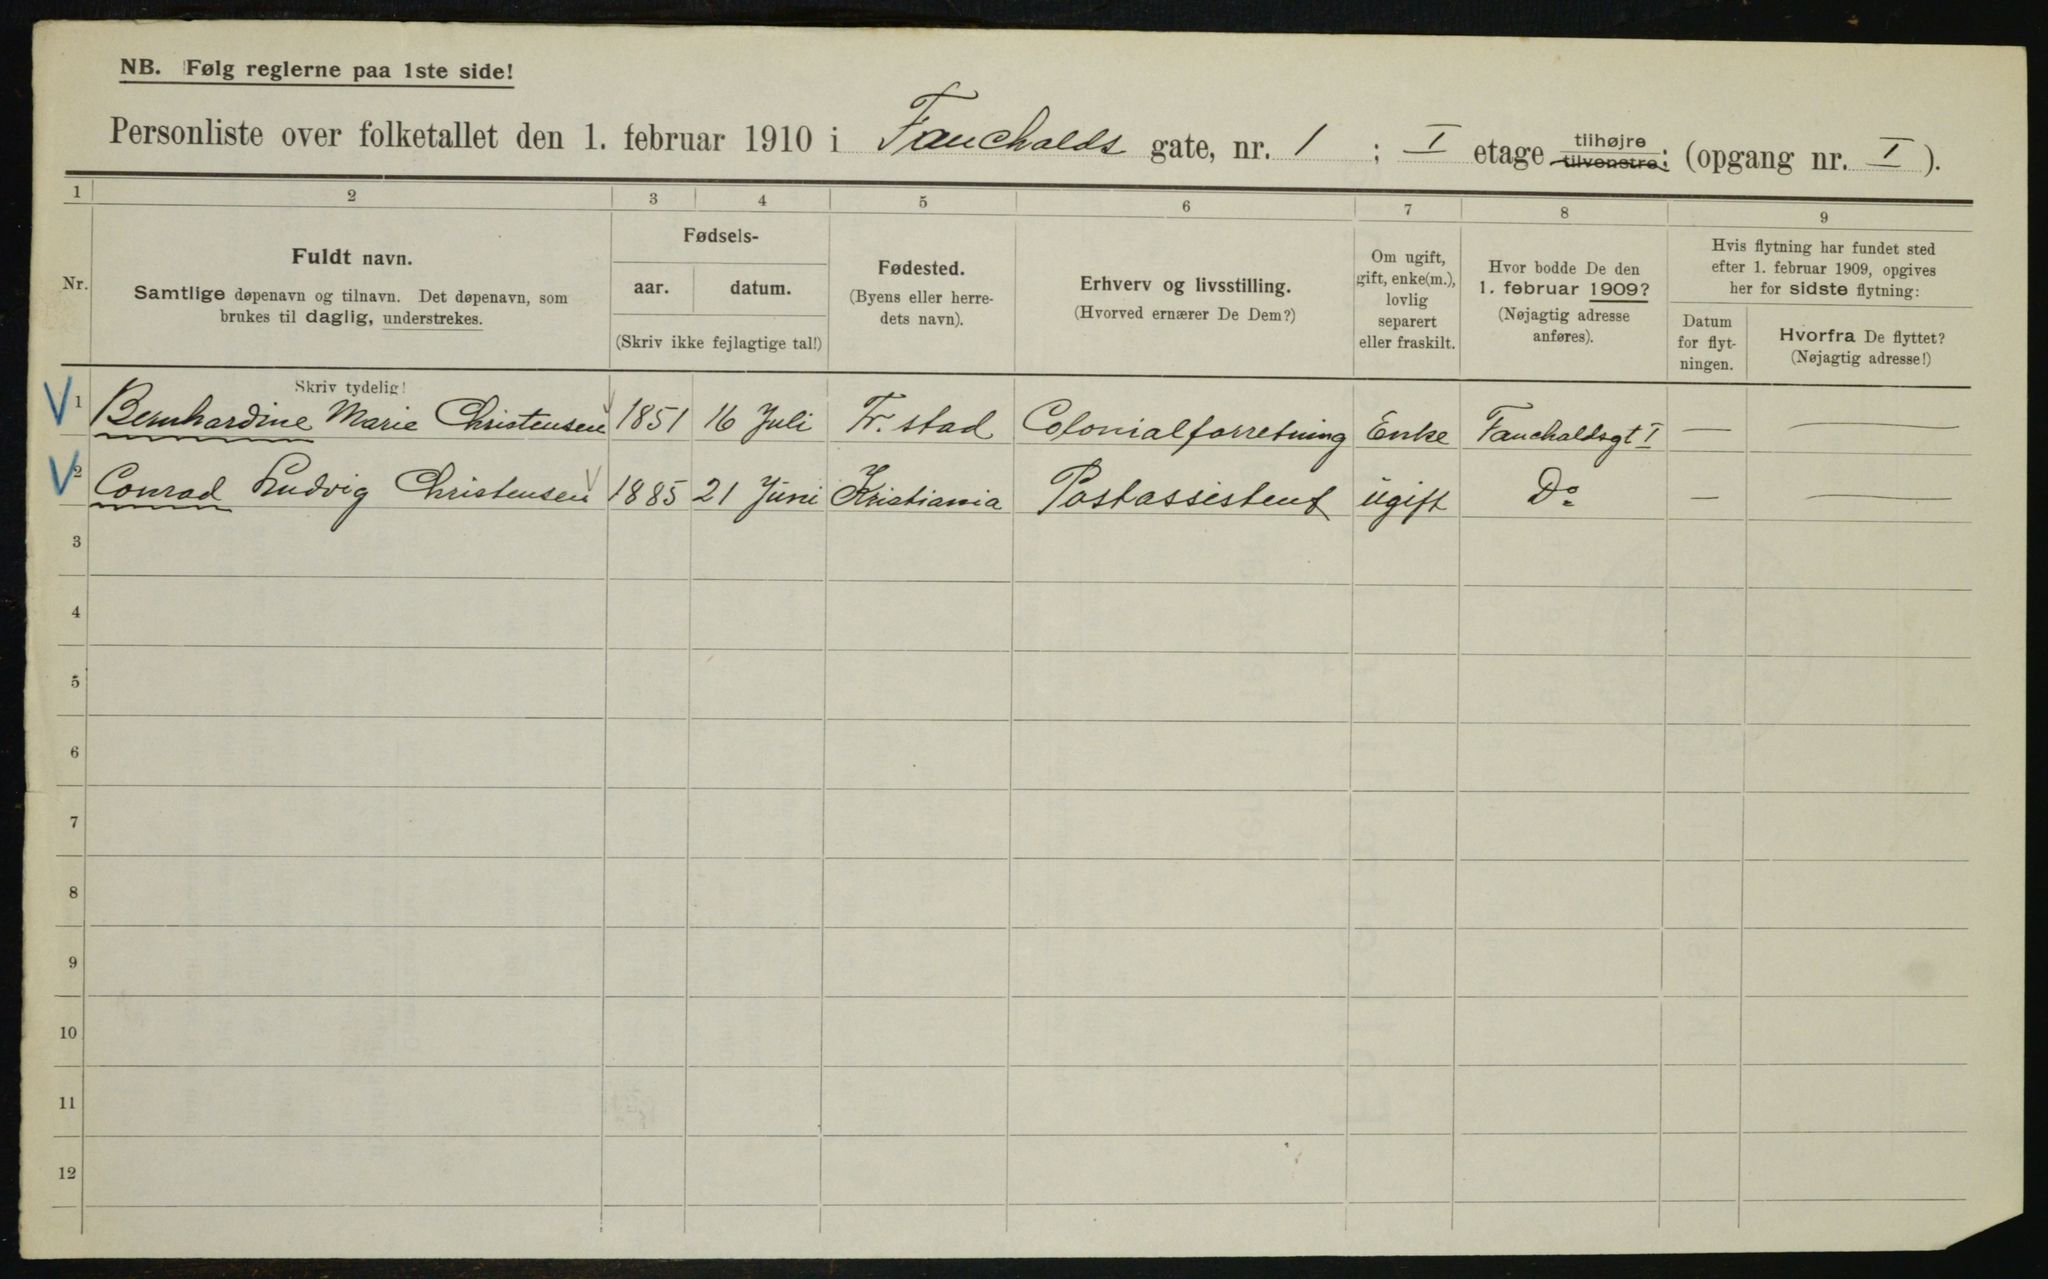 NB. Følg reglerne paa 1ste side!
Personliste over folketallet den 1. februar 1910 i Fauchalds gate, nr. 1 ; I etage tilhøjre tilvenstre; (opgang nr. I ).
1 2 3 4 5 6 7 8 9
Nr.
Fuldt navn.
Samtlige døpenavn og tilnavn. Det døpenavn, som
brukes til daglig, understrekes.
Fødsels-
aar. datum.
(Skriv ikke fejlagtige tal!)
Fødested.
(Byens eller herre-
dets navn).
Erhverv og livsstilling.
(Hvorved ernærer De Dem?)
Om ugift,
gift, enke(m.),
lovlig
separert
eller fraskilt.
Hvor bodde De den
1. februar 1909?
(Nøjagtig adresse
anføres).
Hvis flytning har fundet sted
efter 1. februar 1909, opgives
her for sidste flytning:
Datum
for flyt-
ningen.
Hvorfra De flyttet?
(Nøjagtig adresse!)
Skriv tydelig!
V 1 Bernhardine Marie Christensen 1851 16 Juli Fr. stad Colonialforretning Enke Fauchaldsgt I — —
V 2 Conrad Ludvig Christensen 1885 21 Juni Kristiania Postassistent ugift Do — —
3
4
5
6
7
8
9
10
11
12